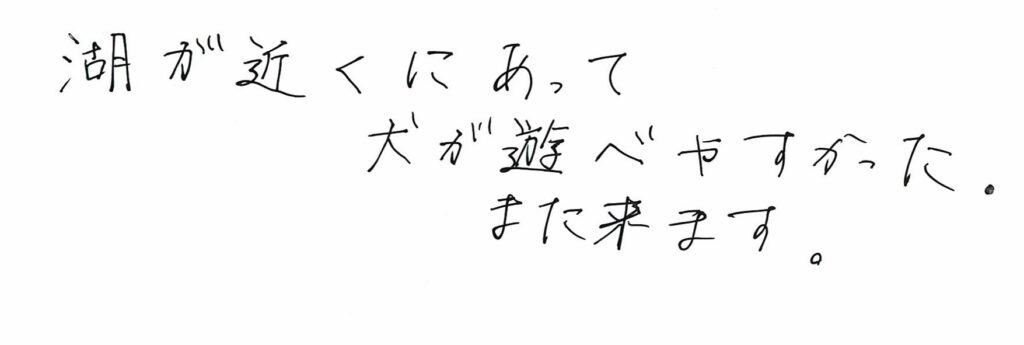 湖が近くにあって
犬が遊べやすかった.
また来ます。